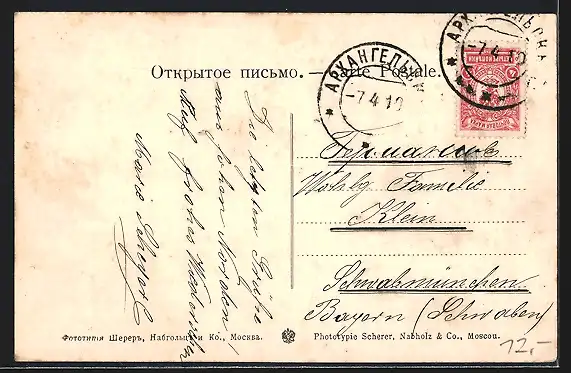 Открытое письмо. — Carte Postale.
АРХАНГЕЛЬСК
-7.4.10
АРХАНГЕЛЬСКА
-7.4.10
Die letzten Grüße
aus hohem Norden,
Auf frohes Wiedersehn
Maria
Германія
Wohlg. Familie
Klein
Schwabmünchen
Bayern (Schwaben)
Фототипія Шереръ, Набгольцъ и Ко., Москва.
Phototypie Scherer, Nabholz & Co., Moscou.
12,-